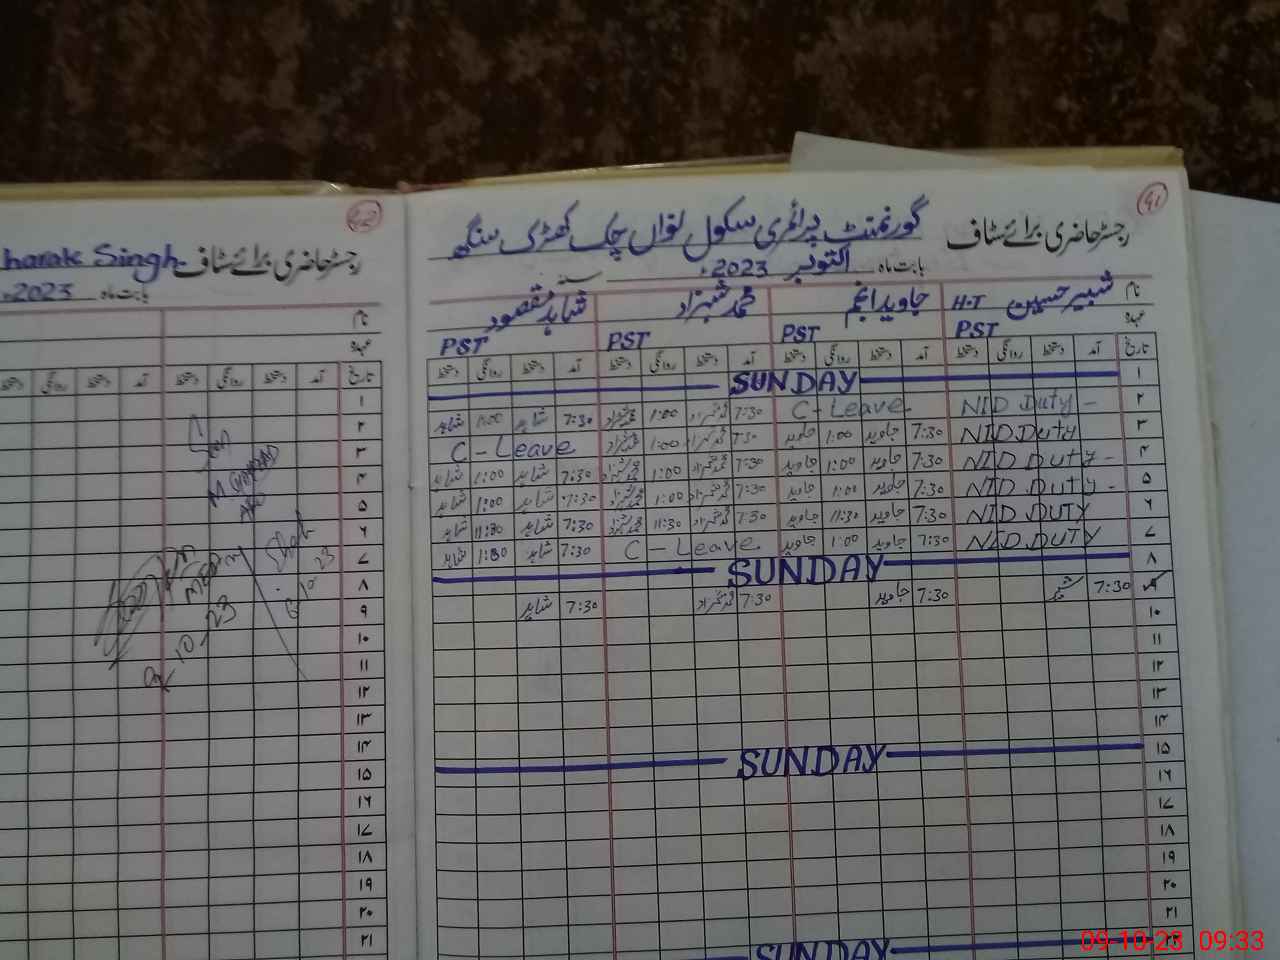 41
رجسٹر حاضری برائے سٹاف گورنمنٹ پرائمری سکول نواں چک کھڑک سنگھ
بابت ماہ اکتوبر 2023ء
نام شبیر حسین H.T جاوید انجم محمد شہزاد شاہد مقصود
عہدہ PST PST PST PST
تاریخ آمد دستخط روانگی دستخط آمد دستخط روانگی دستخط آمد دستخط روانگی دستخط آمد دستخط روانگی دستخط
۱ SUNDAY
۲ NID Duty - C-Leave 7:30 محمد شہزاد 1:00 محمد شہزاد 7:30 شاہد 1:00 شاہد
۳ NID Duty 7:30 جاوید 1:00 جاوید 7:30 محمد شہزاد 1:00 محمد شہزاد C-Leave
۴ NID Duty - 7:30 جاوید 1:00 جاوید 7:30 محمد شہزاد 1:00 محمد شہزاد 7:30 شاہد 1:00 شاہد
۵ NID Duty - 7:30 جاوید 1:00 جاوید 7:30 محمد شہزاد 1:00 محمد شہزاد 7:30 شاہد 1:00 شاہد
۶ NID DUTY 7:30 جاوید 11:30 جاوید 7:30 محمد شہزاد 11:30 محمد شہزاد 7:30 شاہد 11:30 شاہد
۷ NID DUTY 7:30 جاوید 1:00 جاوید C-Leave 7:30 شاہد 1:00 شاہد
۸ SUNDAY
۹ 7:30 شبیر 7:30 جاوید 7:30 محمد شہزاد 7:30 شاہد
۱۰
۱۱
۱۲
۱۳
۱۴
۱۵ SUNDAY
۱۶
۱۷
۱۸
۱۹
۲۰
۲۱
۲۲ SUNDAY
42
رجسٹر حاضری برائے سٹاف harak Singh
بابت ماہ 2023ء
نام
عہدہ
تاریخ آمد دستخط روانگی دستخط آمد دستخط روانگی دستخط
۱
۲
۳
۴
۵
۶
۷
۸
۹
۱۰
۱۱
۱۲
۱۳
۱۴
۱۵
۱۶
۱۷
۱۸
۱۹
۲۰
۲۱
9.10.23
09-10-23 09:33